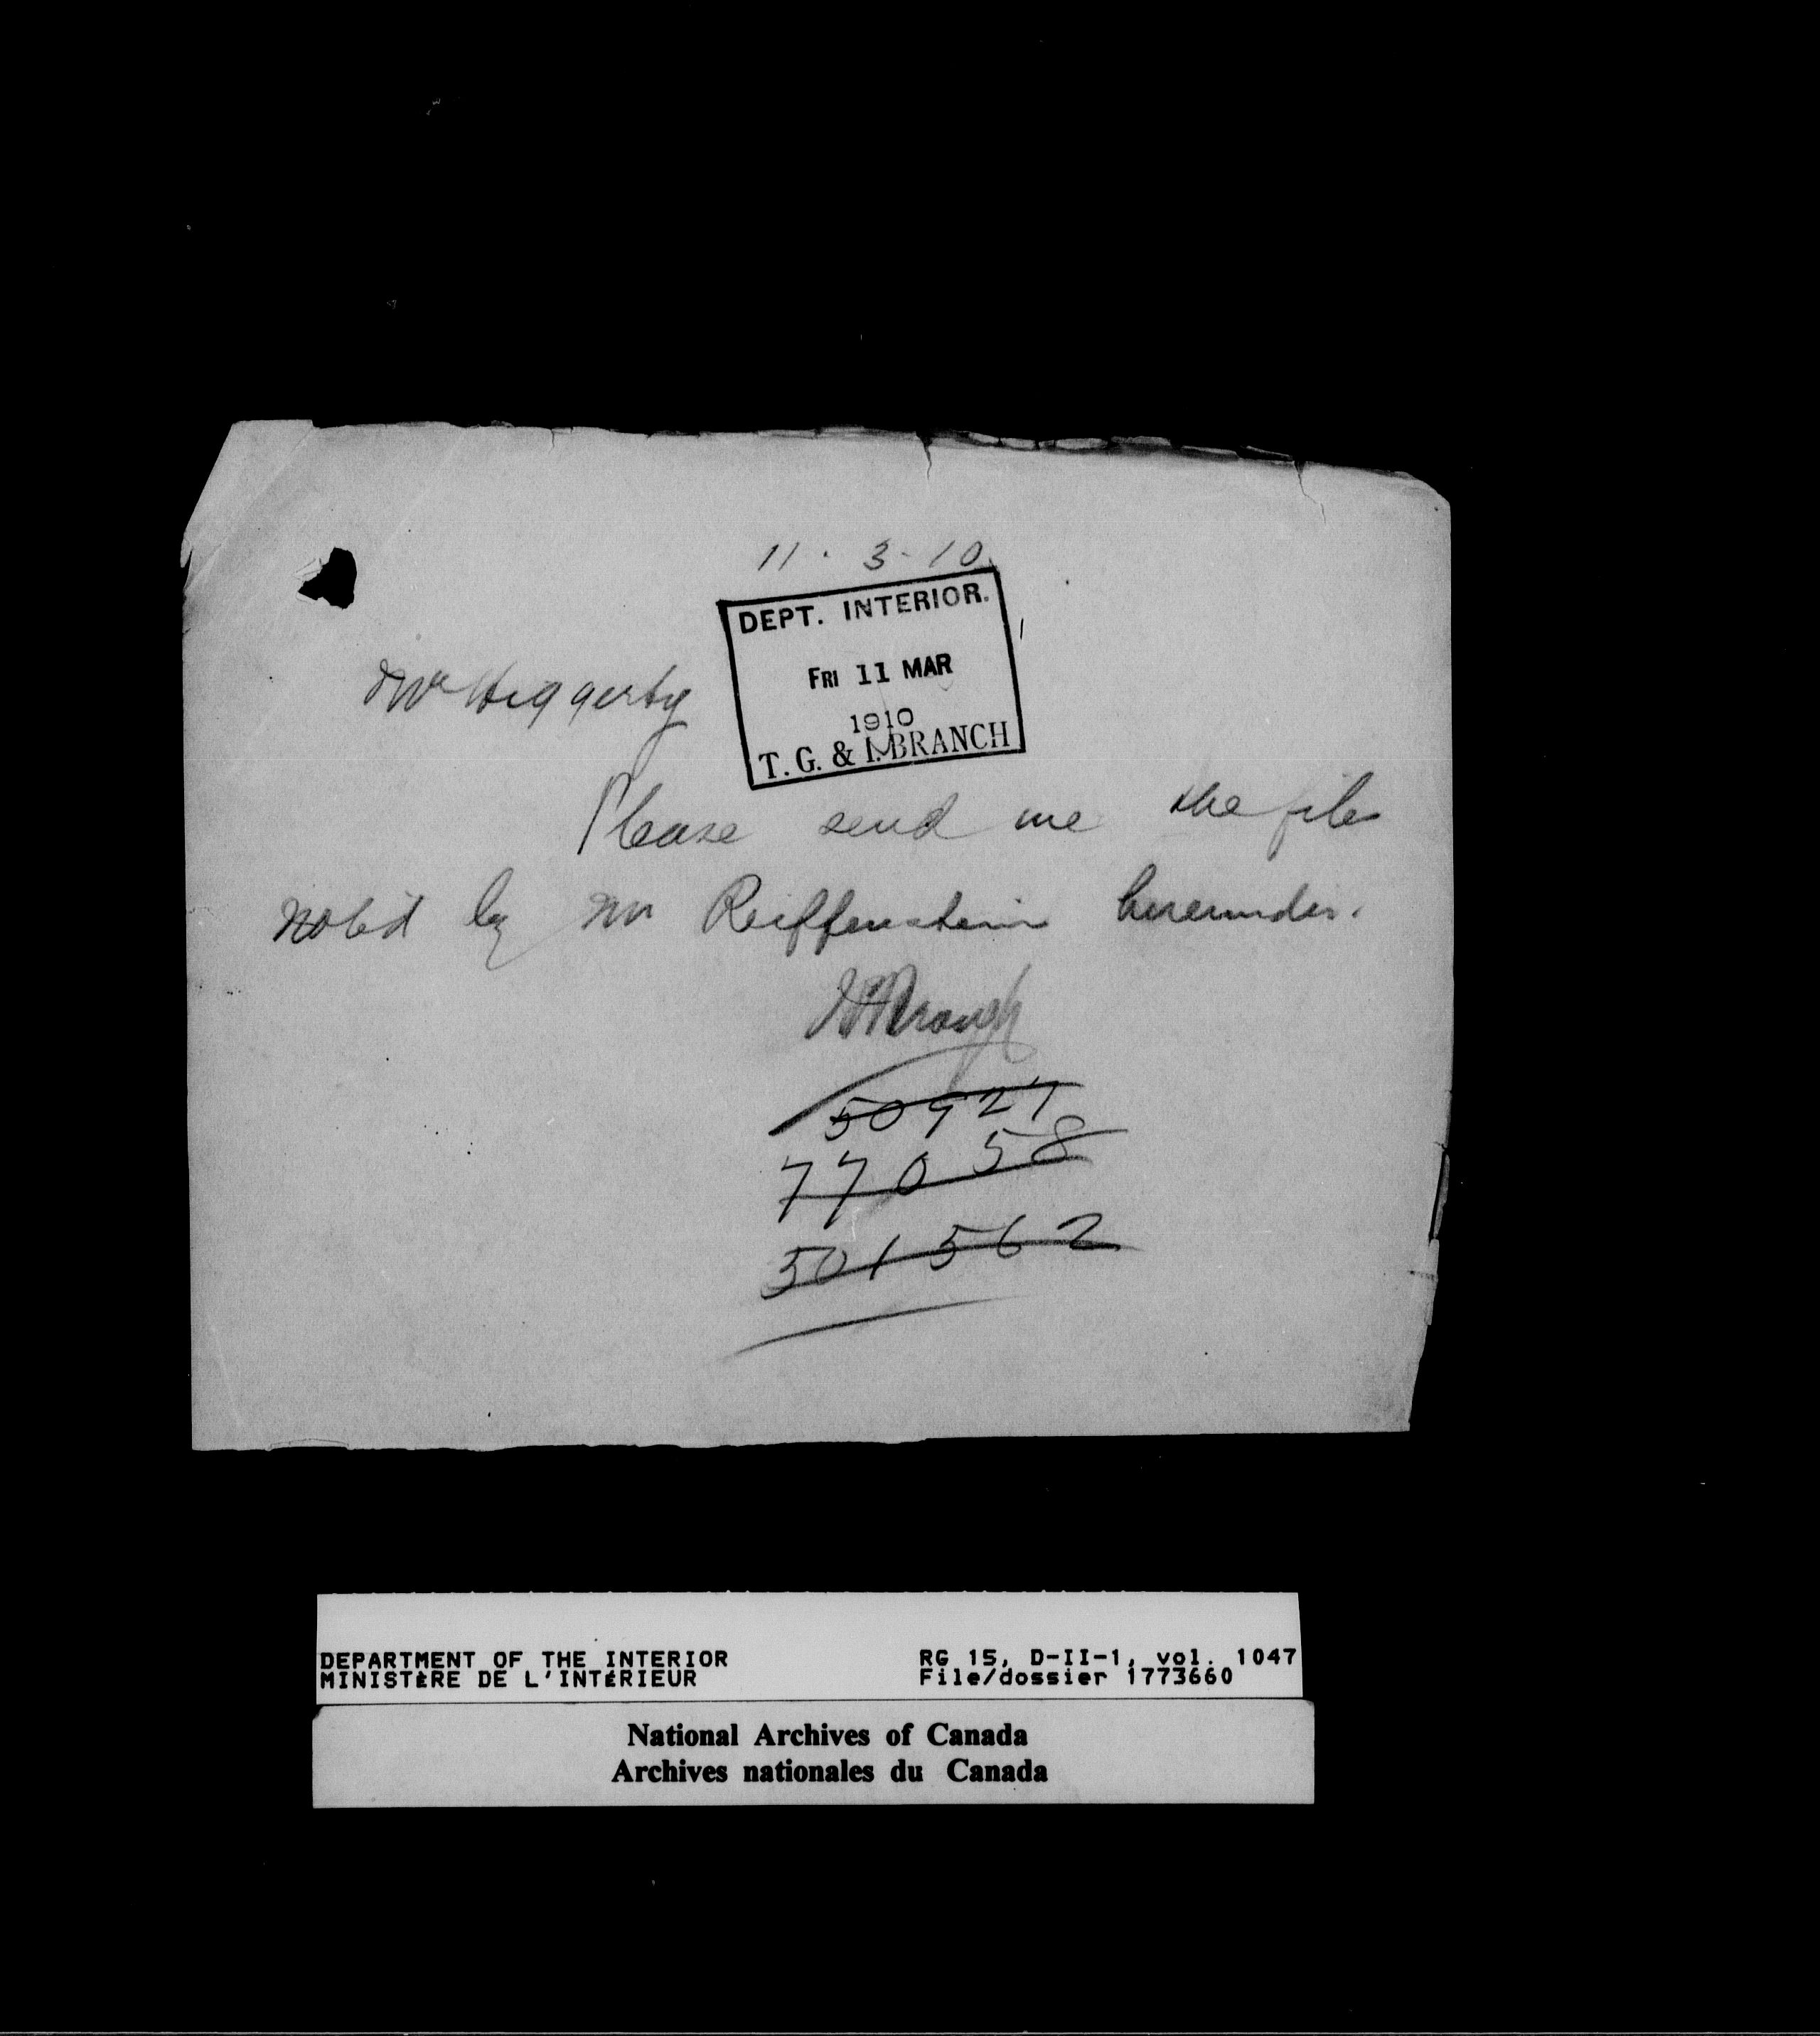 11 · 3 - 10.
DEPT. INTERIOR.
FRI 11 MAR
1910
T. G. & I. BRANCH
Mr Heggerty
Please send me the files
noted by Mr Reiffenstein hereunder.
50927
77058
501562
DEPARTMENT OF THE INTERIOR
MINISTÈRE DE L'INTÉRIEUR
RG 15, D-II-1, vol. 1047
File/dossier 1773660
National Archives of Canada
Archives nationales du Canada